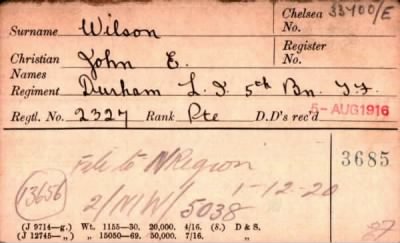 Surname Wilson Chelsea No. 33400/E
Christian Names John E. Register No.
Regiment Durham L. I. 5th Bn. T.F.
Regtl. No. 2327 Rank Pte D.D's rec'd 5- AUG 1916
File to N Region 3685
13656 1-12-20
2/NW/5038
(J 9714—g.) Wt. 1155—30. 20,000. 4/16. (S.) D & S.
(J 12745— „) „ 15050—69. 50,000. 7/16. „